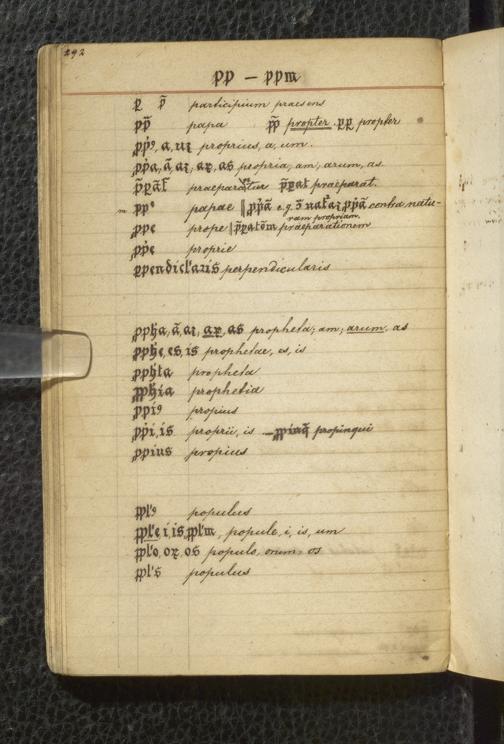 292
pp — ppm
p p̄ participium praesens
pp̄ papa p̄p propter · pp propter
pp⁹, a, ui proprius, a, um.
ppa, ā, ai, ap, as propria, am, arum, as
praeparatur praeparat.
m pp⁰ papae || ppā e.g. ɔ̄ natāi ppā contra natu-
ram propriam.
ppe prope | praeparationem
ppe proprie
ppendiclaris perpendicularis
ppha, ā, ai, ap, as propheta, am, arum, as
pphe, es, is prophetae, es, is
pphta propheta
pphia prophetia
ppi⁹ propius
ppi, is proprii, is — ppinq̄ propinqui
ppius propius
ppl⁹ populus
pple, i, is, pplm, popule, i, is, um
pplo, op, os populo, orum, os
ppls populus